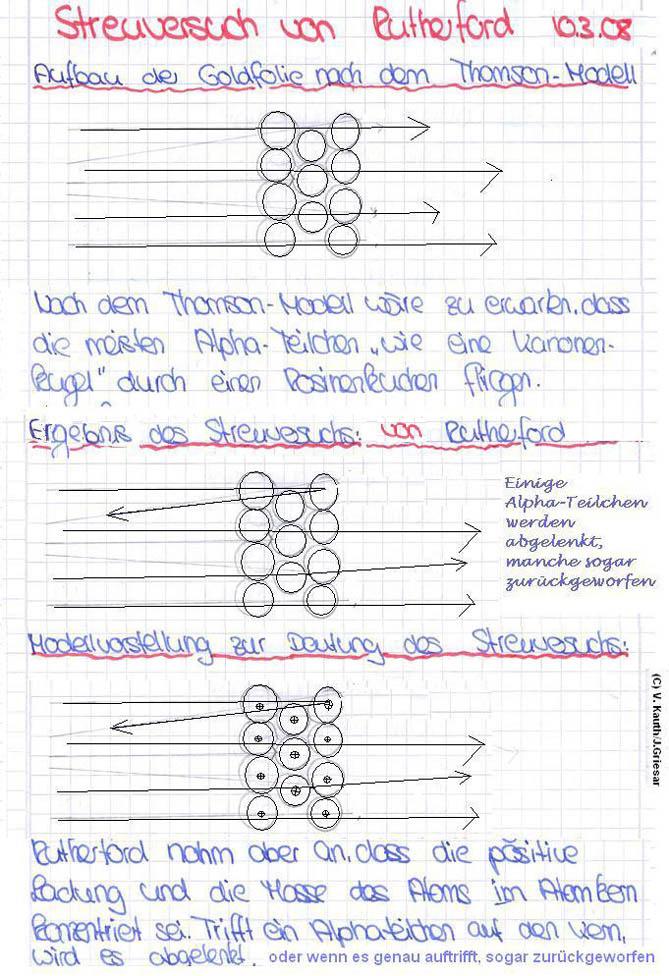 Streuversuch von Rutherford 10.3.08
Aufbau der Goldfolie nach dem Thomson-Modell
Nach dem Thomson-Modell wäre zu erwarten, dass
die meisten Alpha-Teilchen „wie eine Kanonen-
kugel" durch einen Rosinenkuchen fliegen.
Ergebnis des Streuvesuchs: von Rutherford
Einige
Alpha-Teilchen
werden
abgelenkt,
manche sogar
zurückgeworfen
Modellvorstellung zur Deutung des Streuvesuchs:
(C) V. Kauth/J.Griesar
Rutherford nahm aber an, dass die positive
Ladung und die Masse das Atoms im Atomkern
konzentriert sei. Trifft ein Alphateilchen auf den Kern,
wird es abgelenkt. oder wenn es genau auftrifft, sogar zurückgeworfen